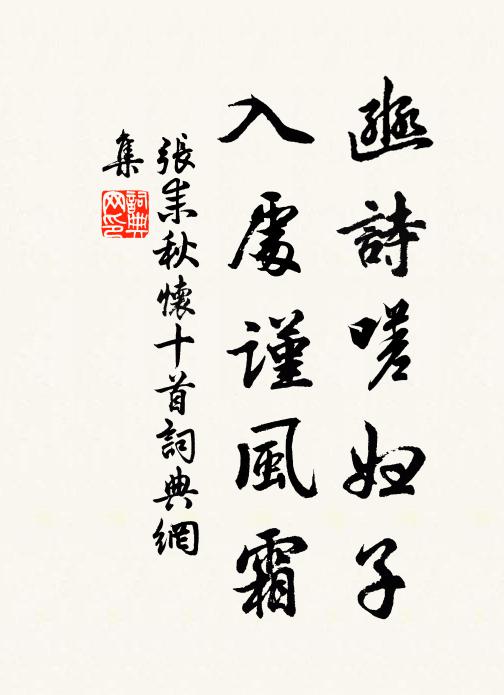 豳詩嗟婦子
入處謹風霜
張耒秋懷十首詞典網
集
詞典網印